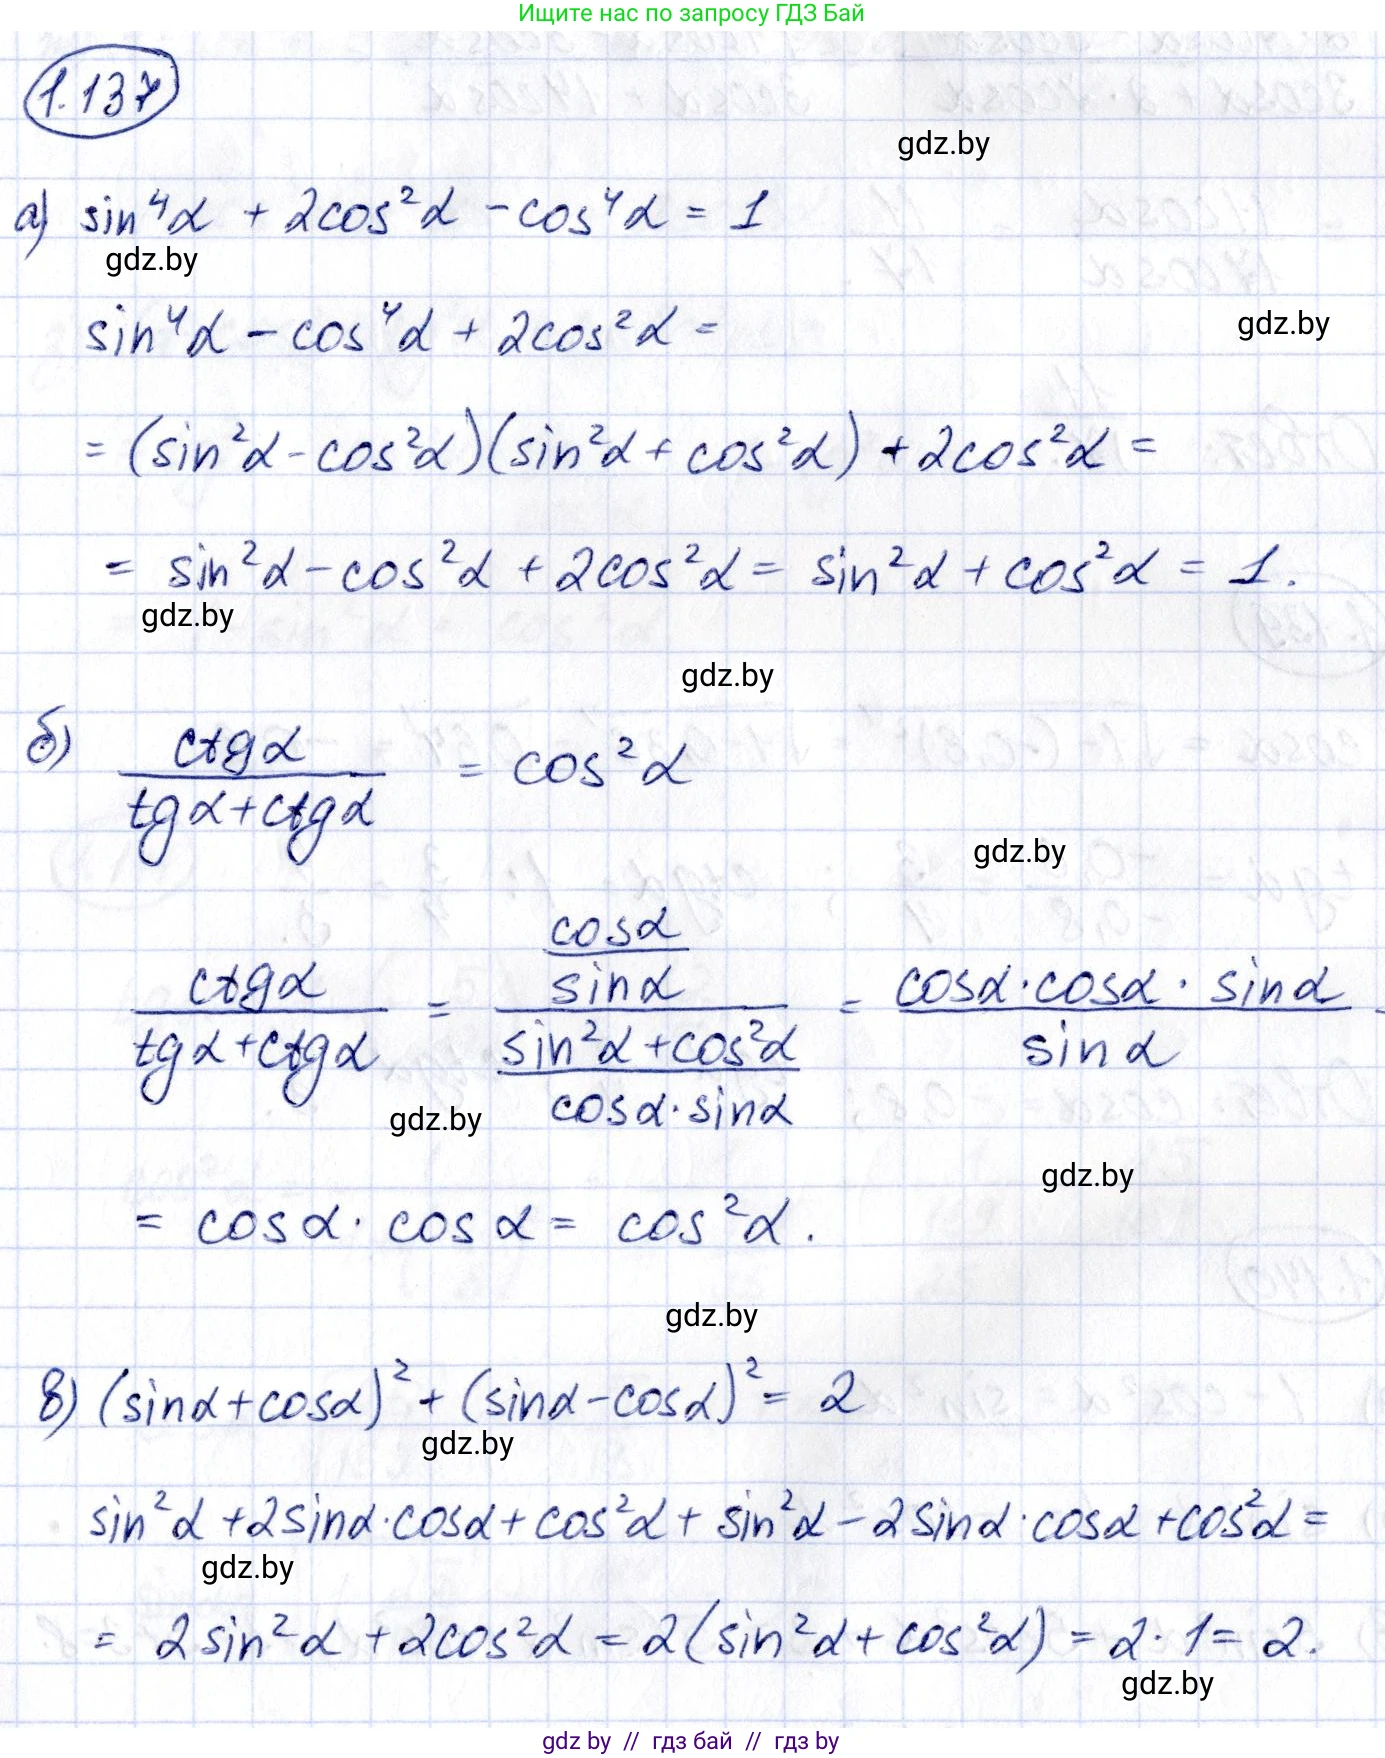 Ищите нас по запросу ГДЗ Бай
1.137
gdz.by
а) sin⁴α + 2cos²α - cos⁴α = 1
gdz.by
sin⁴α - cos⁴α + 2cos²α =
gdz.by
= (sin²α - cos²α)(sin²α + cos²α) + 2cos²α =
= sin²α - cos²α + 2cos²α = sin²α + cos²α = 1.
gdz.by
gdz.by
б) ctgα / (tgα + ctgα) = cos²α
gdz.by
ctgα / (tgα + ctgα) = (cosα / sinα) / ((sin²α + cos²α) / (cosα · sinα)) = (cosα · cosα · sinα) / sinα =
gdz.by
gdz.by
= cosα · cosα = cos²α.
gdz.by
в) (sinα + cosα)² + (sinα - cosα)² = 2
gdz.by
sin²α + 2sinα · cosα + cos²α + sin²α - 2sinα · cosα + cos²α =
gdz.by
= 2sin²α + 2cos²α = 2(sin²α + cos²α) = 2 · 1 = 2.
gdz.by
gdz by // гдз бай // гдз by